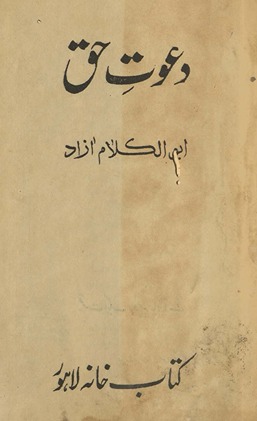 دعوتِ حق
ابی الکلام آزاد
کتاب خانہ لاہور